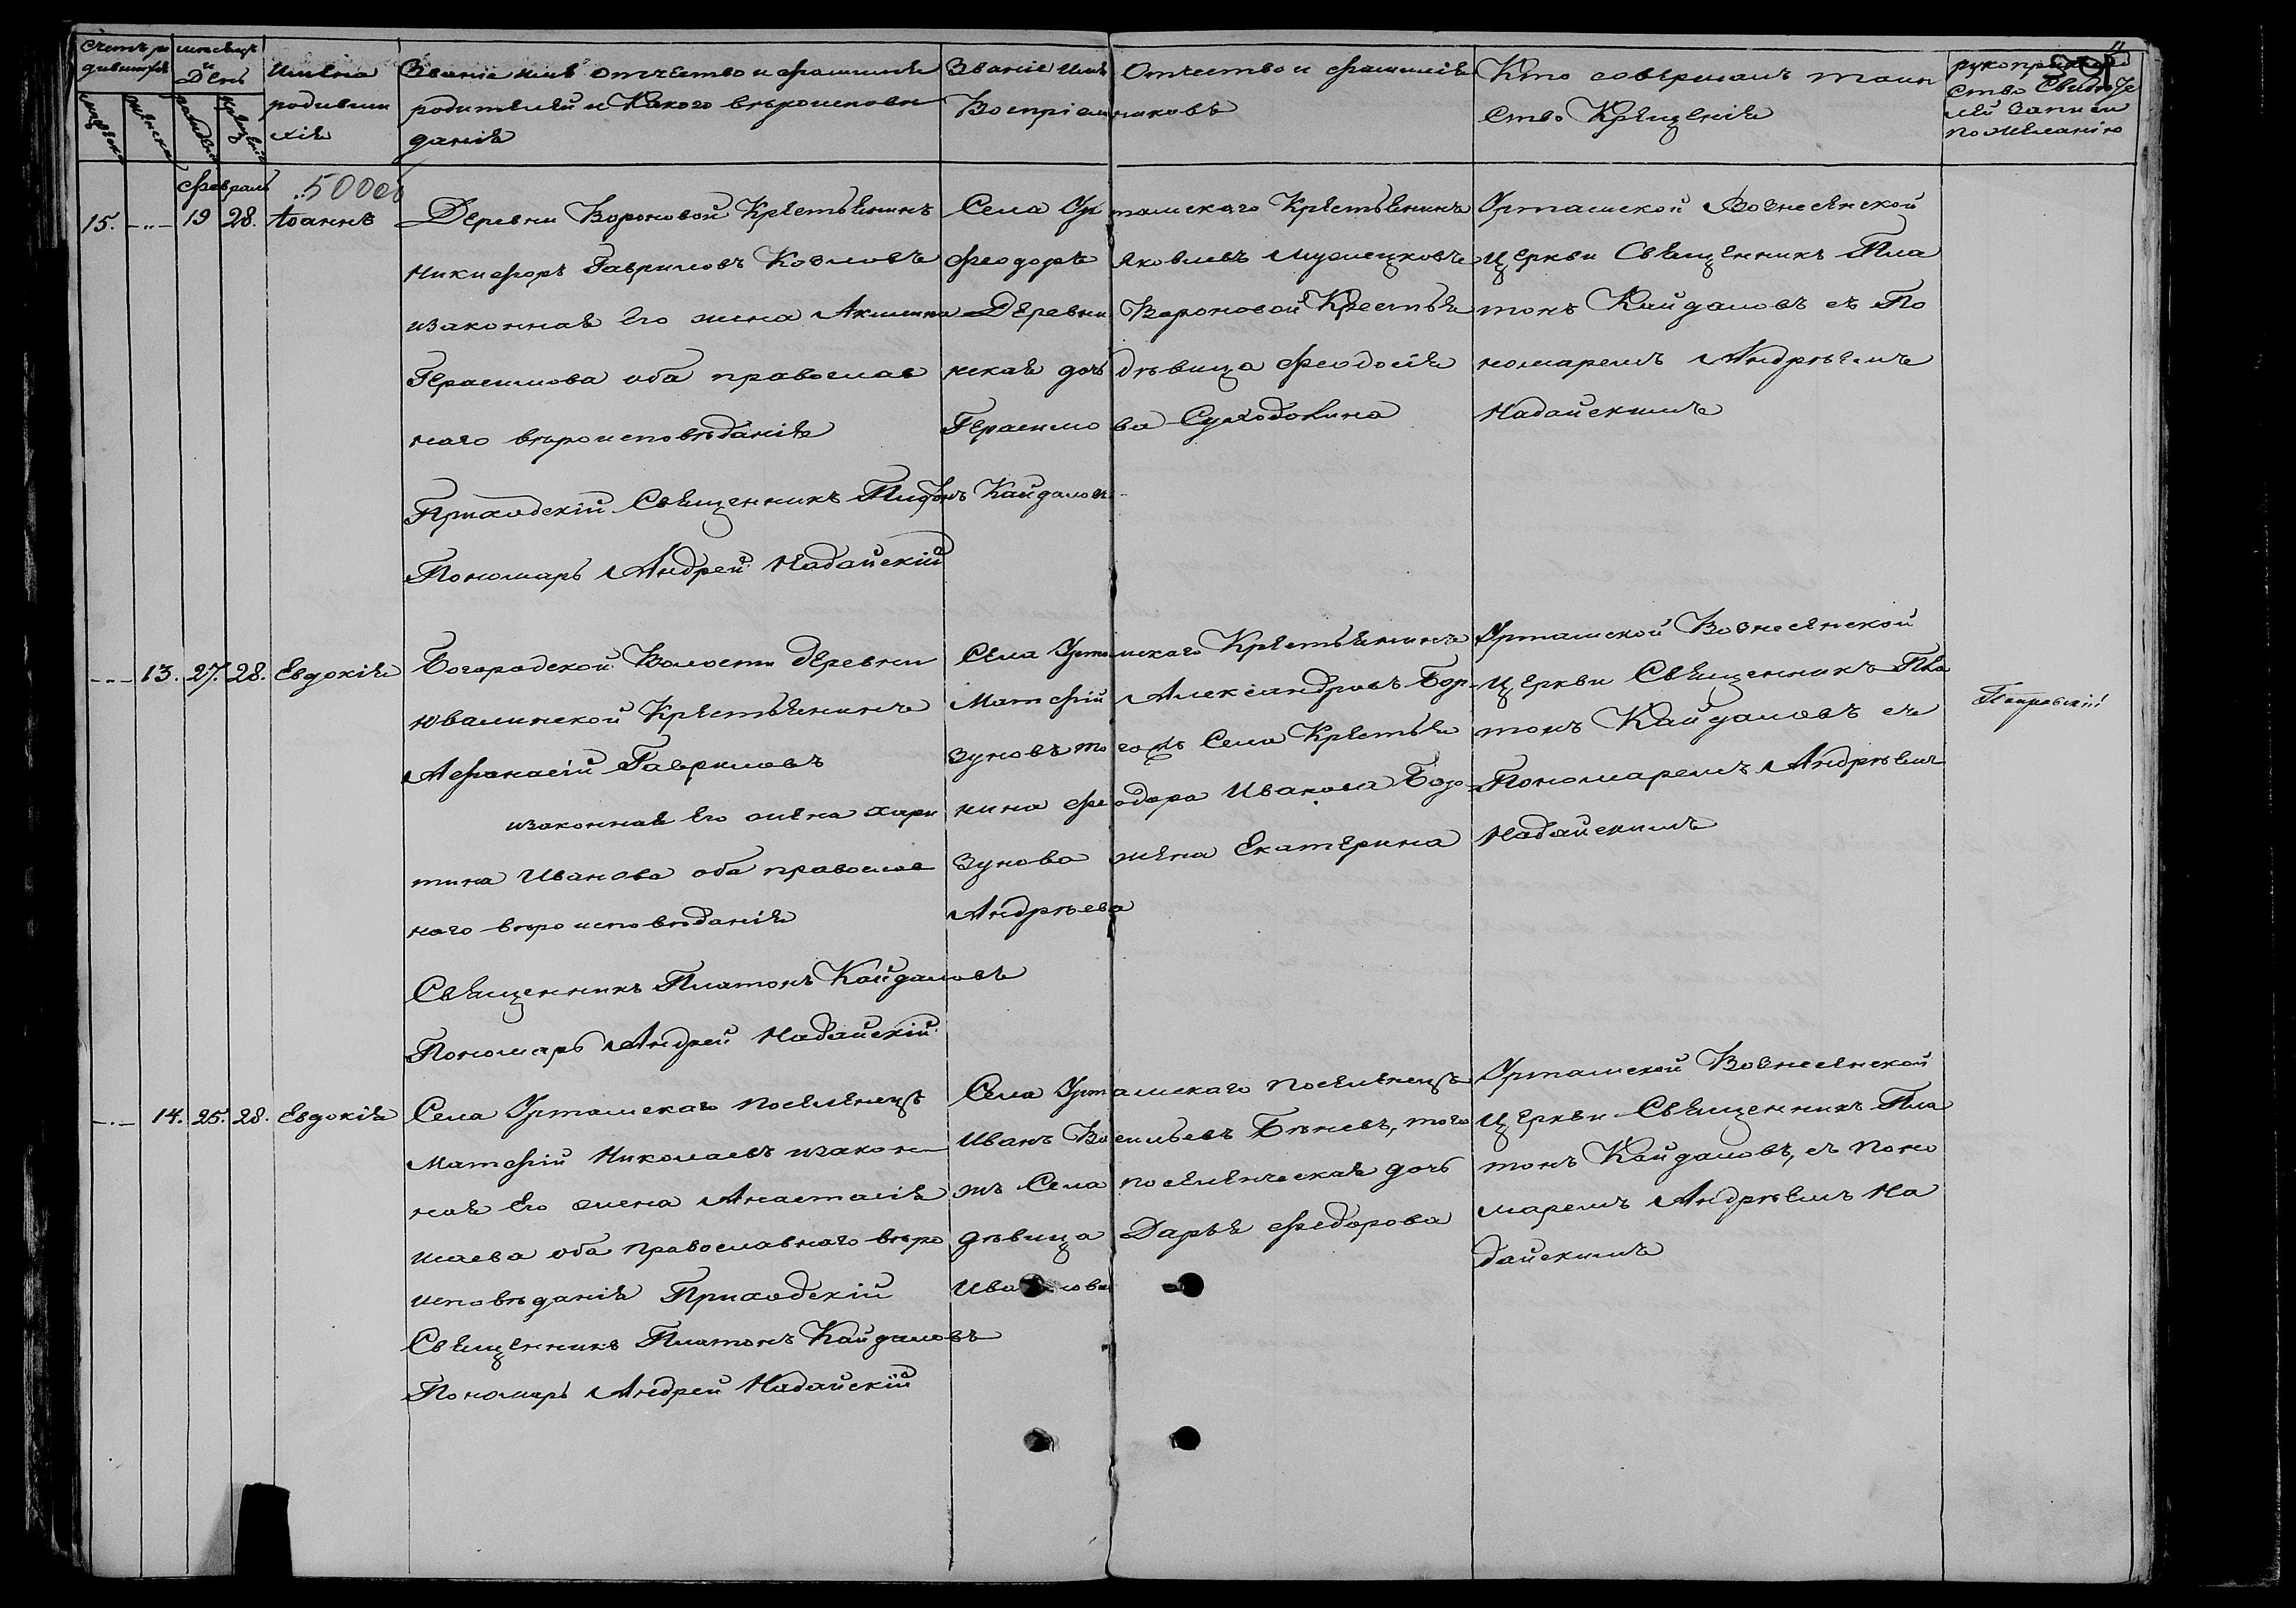 Счетъ ро
дившихся
мѣсяцъ
и
День
Имѣна
родивши
хся
Званіе имя отчество и фамилія
родителей и Какого вѣроисповѣ
данія
Званіе имя Отчество и фамилія
Воспріемниковъ
Кто совершалъ таин
ство Крещенія
рукоприклад
ство Свидѣте
лей записи
по желанію
февраль
15. -„- 19 28. Іоаннъ
Деревни Вороновой Крестьянинъ
Никифоръ Гавриловъ Козловъ
изаконная Его жена Акилина
Герасимова оба православ
наго вѣроисповѣданія
Приходскій Священникъ Платонъ Кайдаловъ
Пономарь Андрей Надайскій
Села Уртамскаго Крестьянинъ
Феодоръ Яковлевъ
Деревни Вороновой Крестья
нская дочь дѣвица Феодосія
Герасимова Суходолина
Уртамской Вознесенской
Церкви Священникъ Пла
тонъ Кайдаловъ съ По
номаремъ Андрѣемъ
Надайскимъ
--- 13. 27. 28. Евдокія
Богородской Волости деревни
Ювалинской Крестьянинъ
Афанасій Гавриловъ
изаконная Его жена Хари
тина Иванова оба православ
наго вѣроисповѣданія
Священникъ Платонъ Кайдаловъ
Пономарь Андрей Надайскій
Села Уртамскаго Крестьянинъ
Матфій Александровъ Бор-
зуновъ тогожъ Села Крестья
нина Феодора Иванова Бор-
зунова жена Екатерина
Андрѣева
Уртамской Вознесенской
Церкви Священникъ Пла
тонъ Кайдаловъ съ
Пономаремъ Андрѣемъ
Надайскимъ
-.- 14. 25. 28. Евдокія
Села Уртамскаго поселенецъ
Матфій Николаевъ изакон
ная Его жена Анастасія
Исаева оба православнаго вѣро
исповѣданія Приходскій
Священникъ Платонъ Кайдаловъ
Пономарь Андрей Надайскій
Села Уртамскаго поселенецъ
Иванъ Васильевъ Бѣневъ, того
жъ Села поселенческая дочь
дѣвица Дарья Федорова
Иванова
Уртамской Вознесенской
Церкви Священникъ Пла
тонъ Кайдаловъ, съ Поно
маремъ Андрѣемъ На
дайскимъ